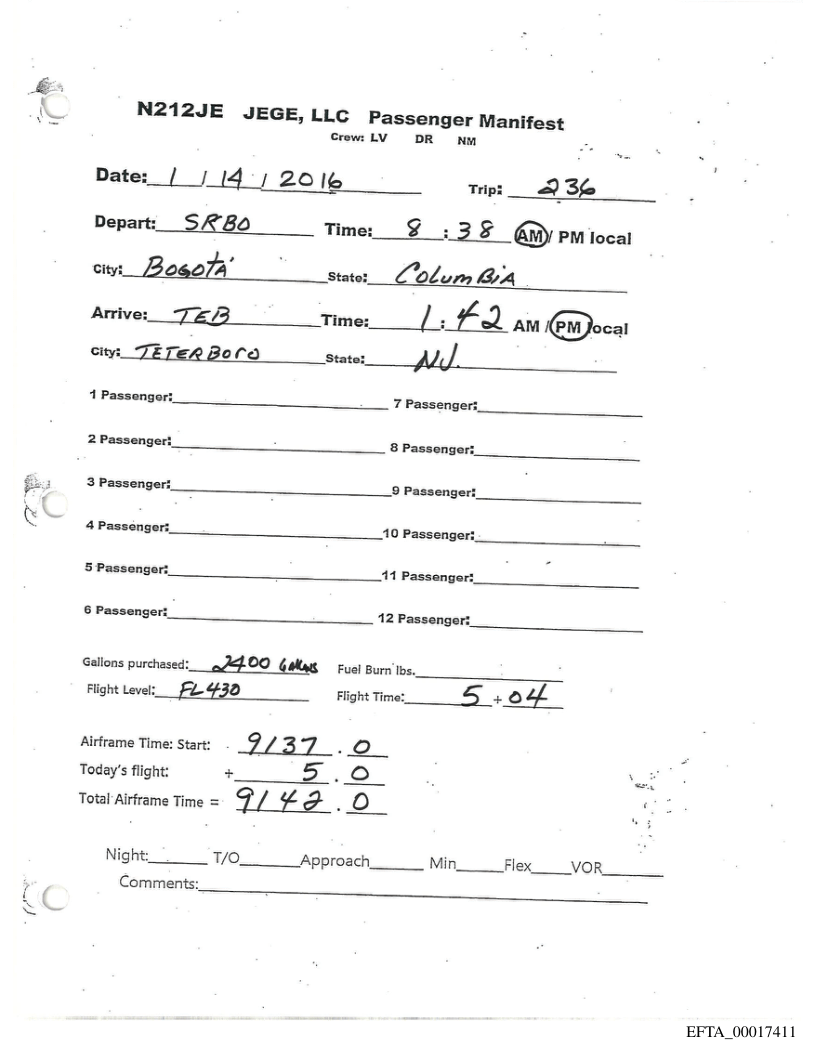 N212JE JEGE, LLC Passenger Manifest
Crew: LV DR NM
Date: 1 / 14 / 2016 Trip: 236
Depart: SRBO Time: 8 : 38 AM / PM local
City: BOGOTÁ State: COLUMBIA
Arrive: TEB Time: 1 : 42 AM / PM local
City: TETERBORO State: NJ.
1 Passenger: 7 Passenger:
2 Passenger: 8 Passenger:
3 Passenger: 9 Passenger:
4 Passenger: 10 Passenger:
5 Passenger: 11 Passenger:
6 Passenger: 12 Passenger:
Gallons purchased: 2400 Gallons Fuel Burn lbs.
Flight Level: FL430 Flight Time: 5 + 04
Airframe Time: Start: 9137 . 0
Today's flight: + 5 . 0
Total Airframe Time = 9142 . 0
Night: T/O Approach Min Flex VOR
Comments:
EFTA_00017411